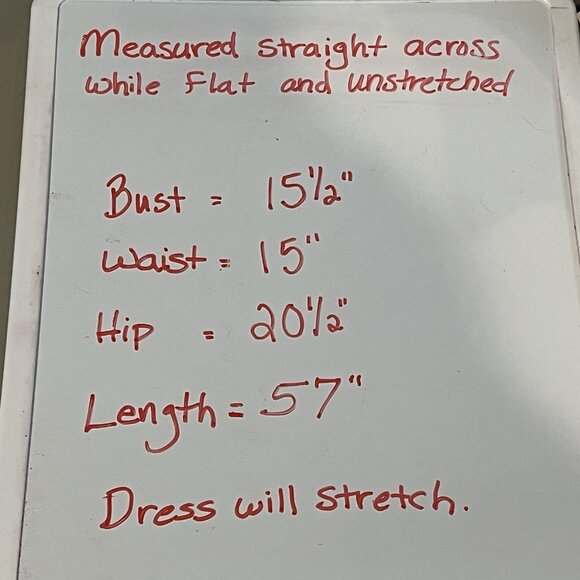 Measured straight across
while flat and unstretched
Bust = 15½"
Waist = 15"
Hip = 20½"
Length = 57"
Dress will stretch.